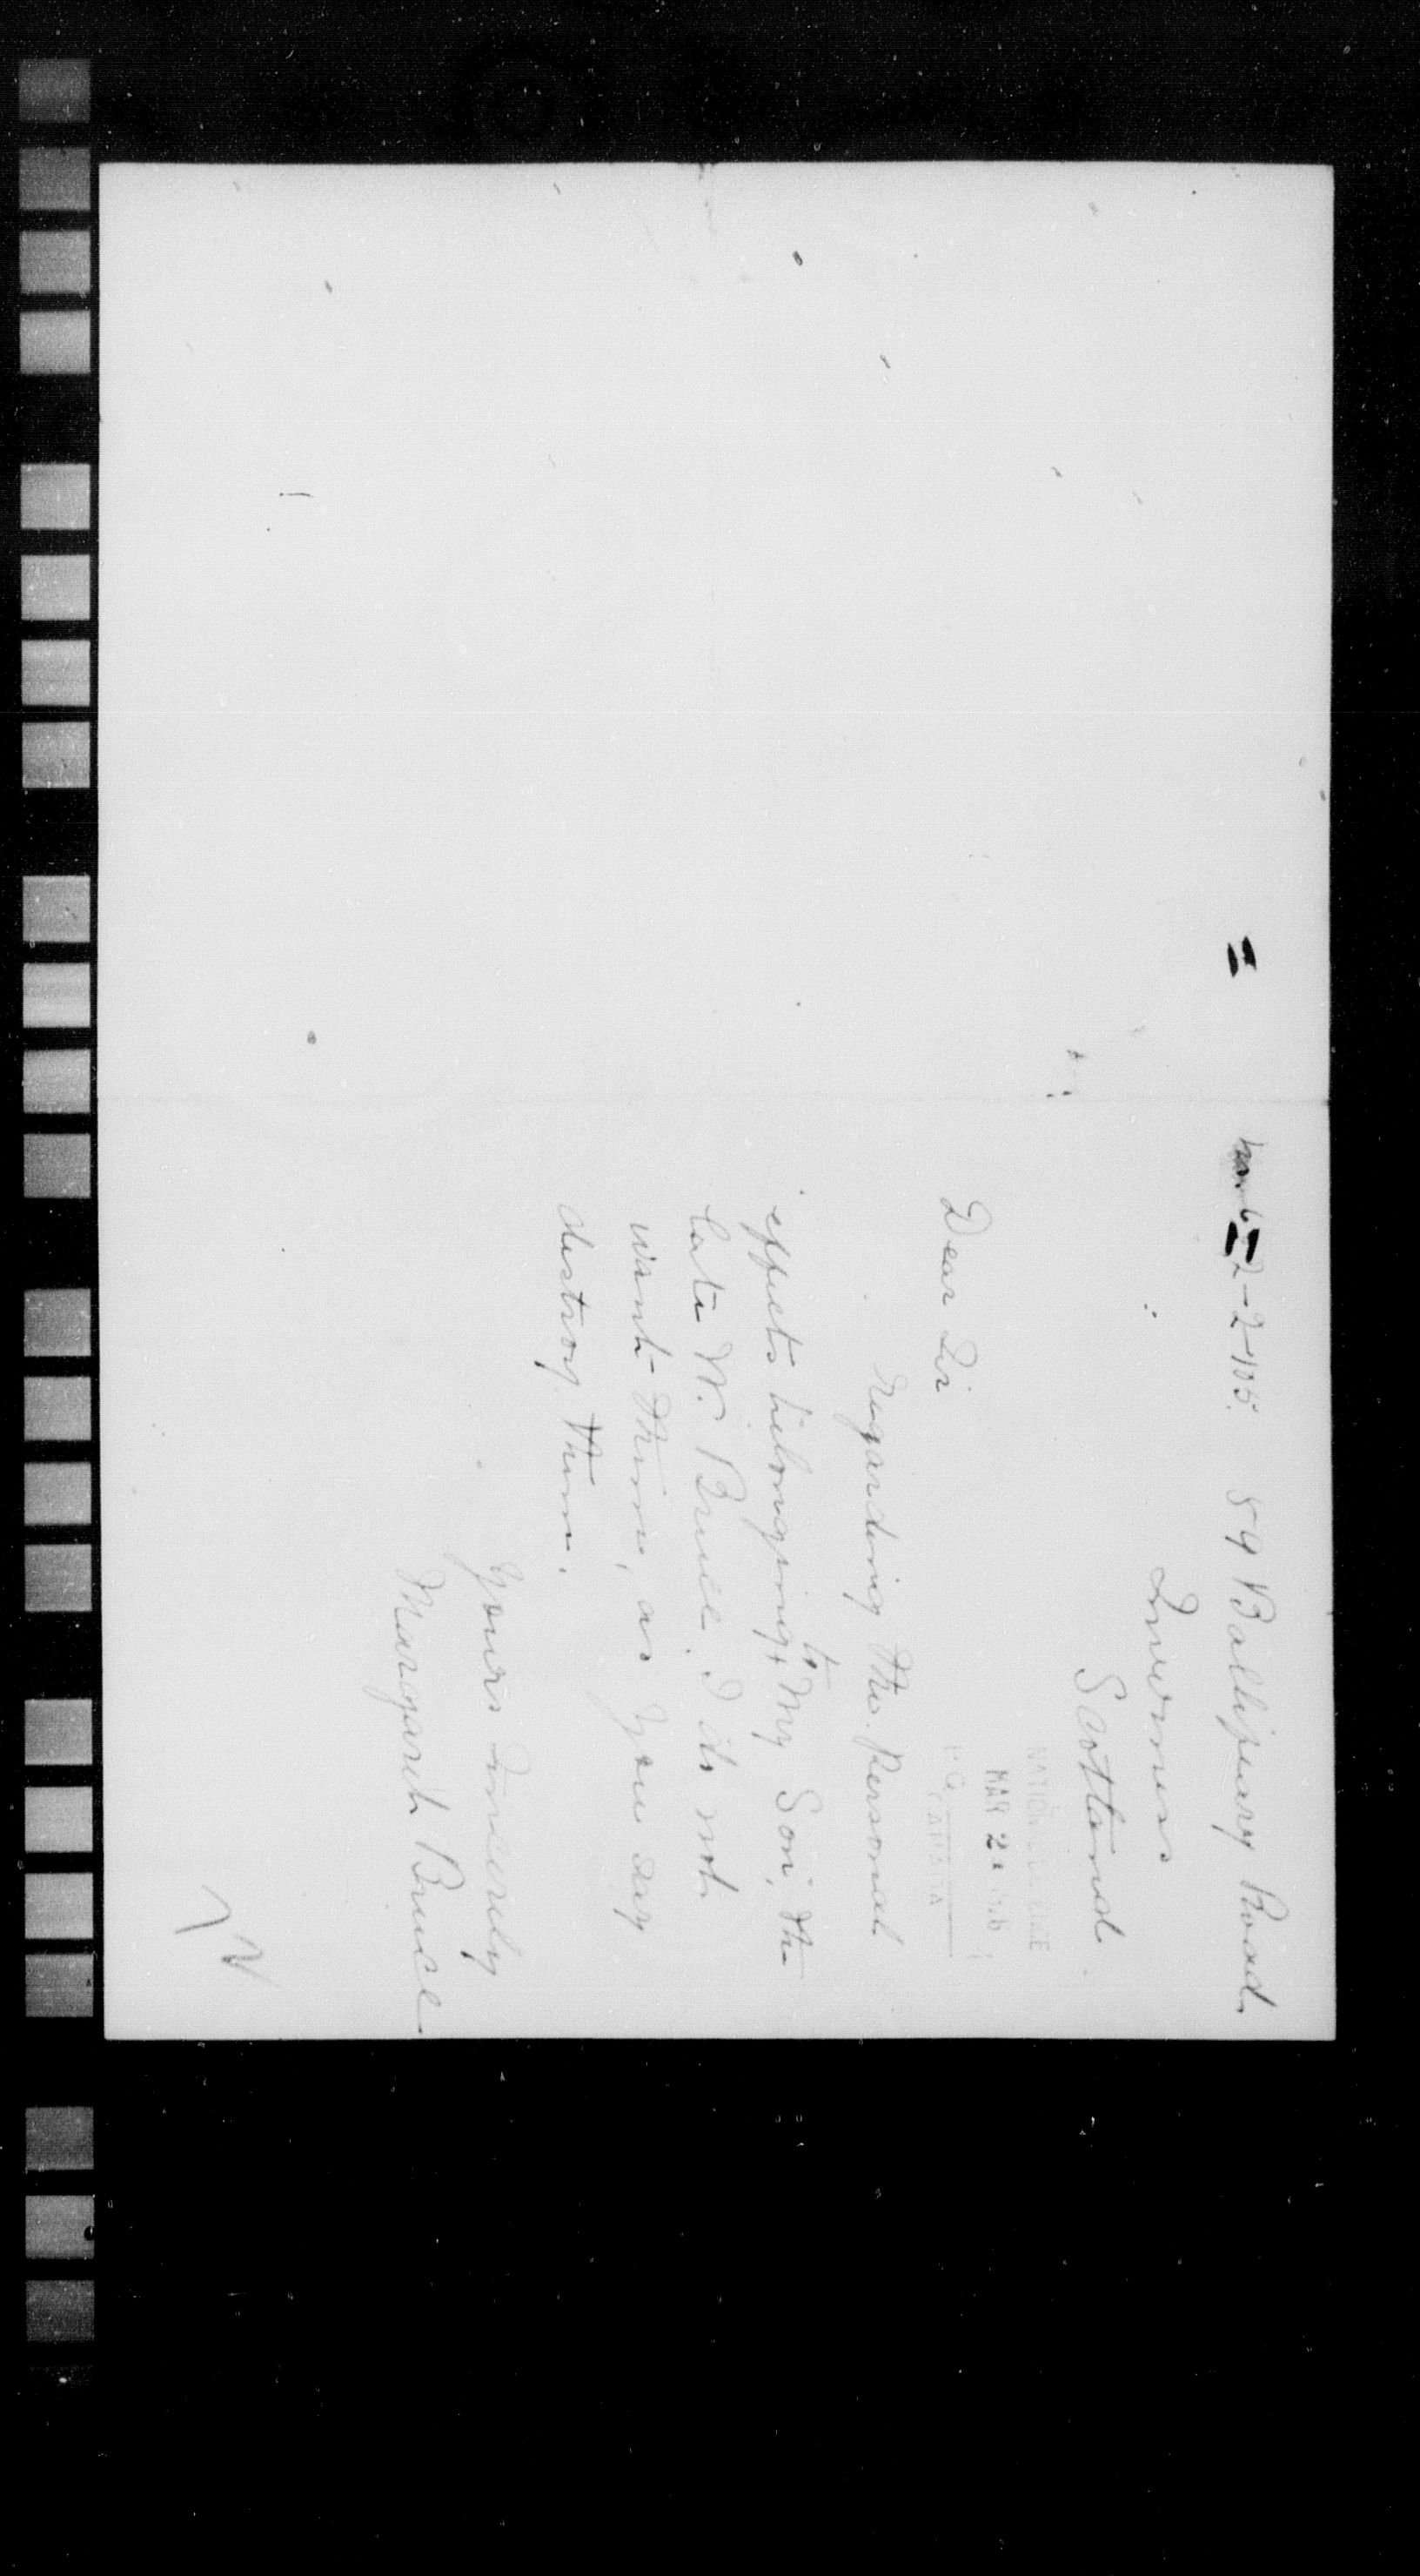 2-2-105. 59 Ballifeary Road.
Inverness
Scotland
NATIONAL DEFENCE
MAR 2
H.Q. CANADA
Dear Sir
Regarding the Personal
effects belonging to My Son, the
late W. Bruce. I do not
want them, as you say
destroy them.
Yours Sincerely
Margaret Bruce